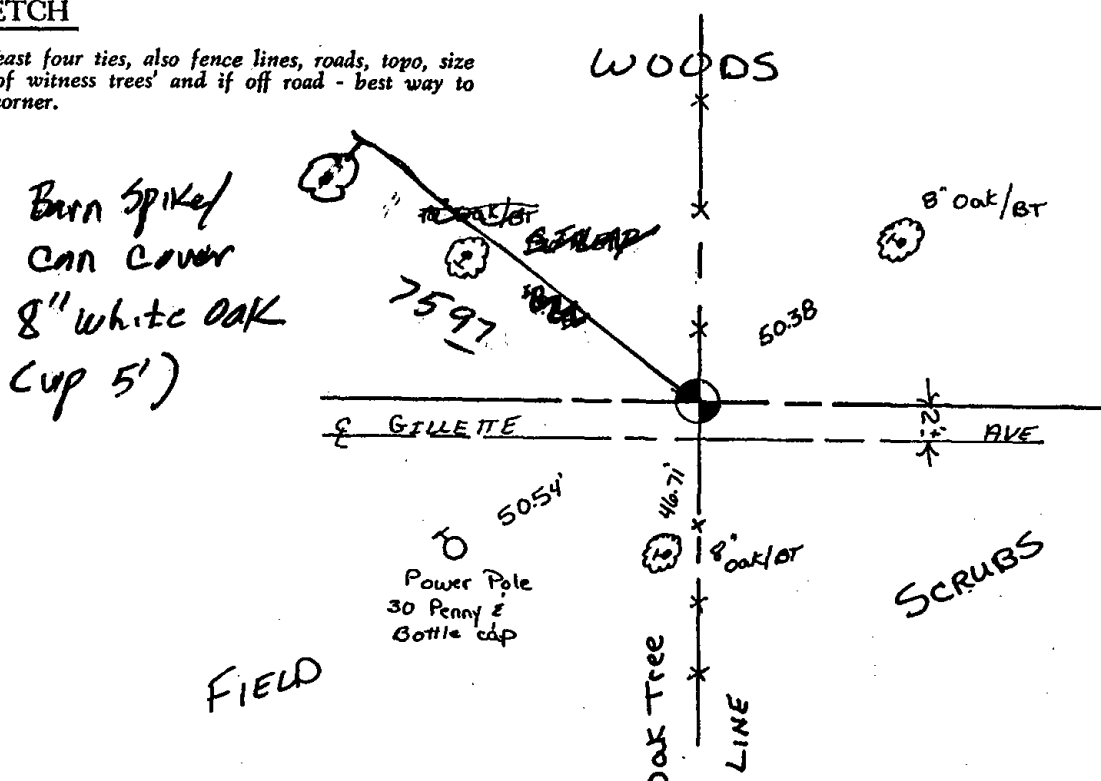 ETCH
east four ties, also fence lines, roads, topo, size
of witness trees' and if off road - best way to
corner.
WOODS
Barn Spike/
Can Cover
8" white Oak
(up 5')
Oak/BT
7597
8" Oak/BT
50.38
℄ GILLETTE AVE
2'±
50.54'
46.71'
8" Oak/BT
Power Pole
30 Penny &
Bottle cap
SCRUBS
FIELD
Oak Tree
LINE